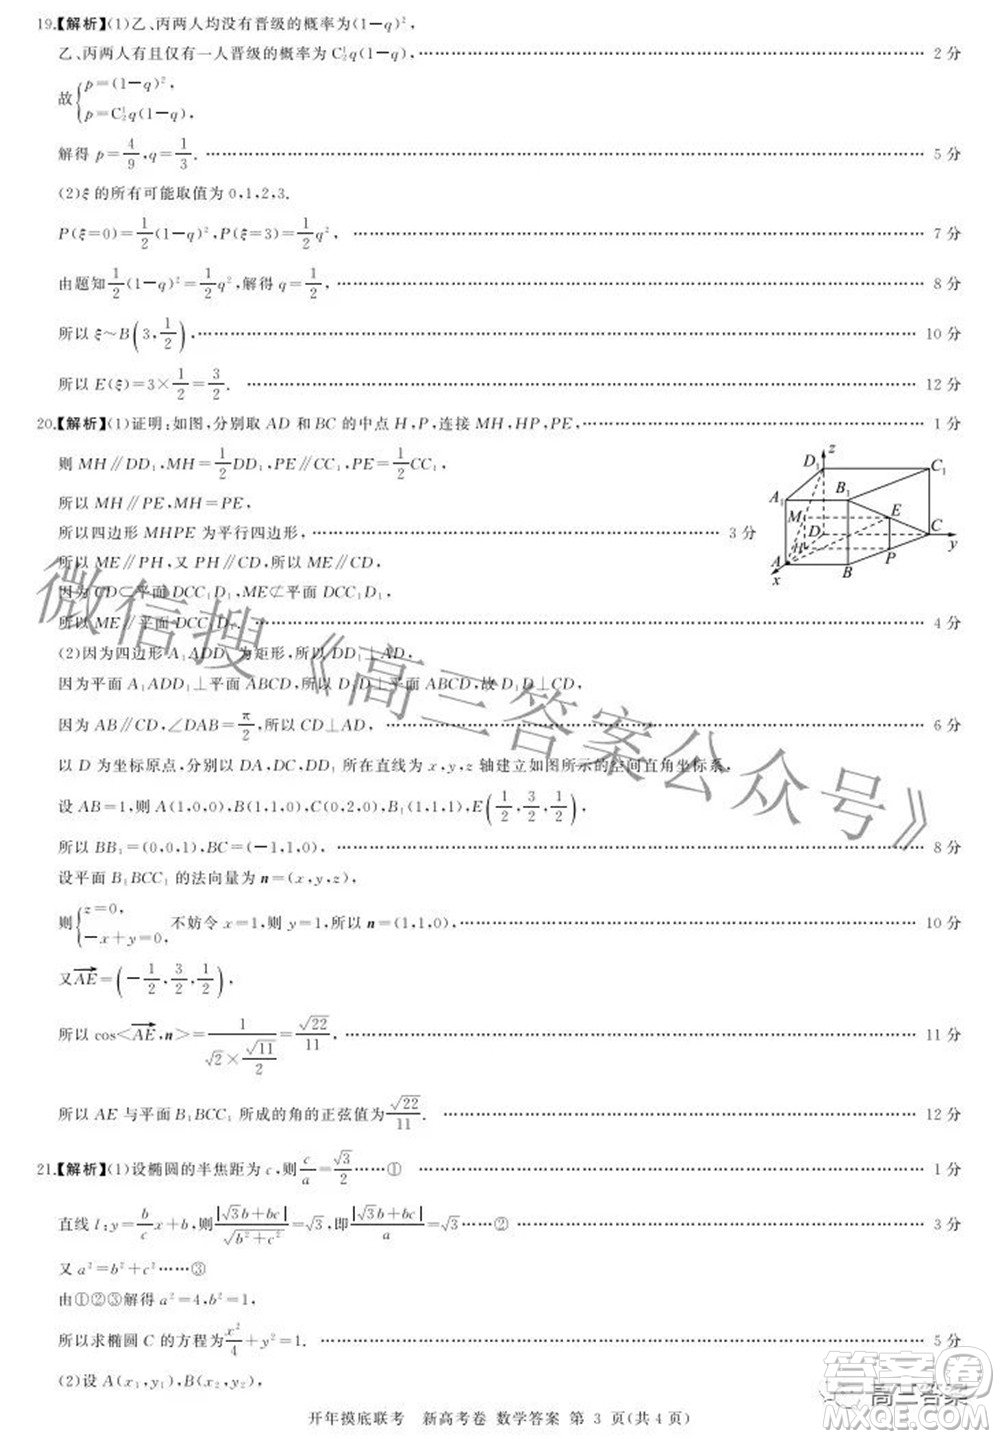 19.【解析】(1)乙、丙两人均没有晋级的概率为(1−q)²,
乙、丙两人有且仅有一人晋级的概率为C₂¹q(1−q), …… 2 分
故{p=(1−q)²,
p=C₂¹q(1−q),
解得 p=4/9,q=1/3. …… 5 分
(2)ξ的所有可能取值为 0,1,2,3.
P(ξ=0)=1/2(1−q)²,P(ξ=3)=1/2q², …… 7 分
由题知1/2(1−q)²=1/2q²,解得 q=1/2, …… 8 分
所以 ξ~B(3,1/2), …… 10 分
所以 E(ξ)=3×1/2=3/2. …… 12 分
20.【解析】(1)证明:如图,分别取 AD 和 BC 的中点 H,P,连接 MH,HP,PE, …… 1 分
则 MH∥DD₁,MH=1/2DD₁,PE∥CC₁,PE=1/2CC₁,
所以 MH∥PE,MH=PE,
所以四边形 MHPE 为平行四边形, …… 3 分
所以 ME∥PH,又 PH∥CD,所以 ME∥CD,
因为 CD⊂平面 DCC₁D₁,ME⊄平面 DCC₁D₁,
所以 ME∥平面 DCC₁D₁. …… 4 分
D₁ z C₁ A₁ B₁ M E D C y H P A B x
(2)因为四边形 A₁ADD₁ 为矩形,所以 DD₁⊥AD,
因为平面 A₁ADD₁⊥平面 ABCD,所以 D₁D⊥平面 ABCD,故 D₁D⊥CD,
因为 AB∥CD,∠DAB=π/2,所以 CD⊥AD, …… 6 分
以 D 为坐标原点,分别以 DA,DC,DD₁ 所在直线为 x,y,z 轴建立如图所示的空间直角坐标系,
设 AB=1,则 A(1,0,0),B(1,1,0),C(0,2,0),B₁(1,1,1),E(1/2,3/2,1/2),
所以 BB₁=(0,0,1),BC=(−1,1,0), …… 8 分
设平面 B₁BCC₁ 的法向量为 n=(x,y,z),
则{z=0,
−x+y=0, 不妨令 x=1,则 y=1,所以 n=(1,1,0), …… 10 分
又AE→=(−1/2,3/2,1/2),
所以 cos<AE→,n>=1/(√2×√11/2)=√22/11, …… 11 分
所以 AE 与平面 B₁BCC₁ 所成的角的正弦值为√22/11. …… 12 分
21.【解析】(1)设椭圆的半焦距为 c,则c/a=√3/2……① …… 1 分
直线 l:y=b/c x+b,则|√3b+bc|/√(b²+c²)=√3,即|√3b+bc|/a=√3……② …… 3 分
又 a²=b²+c²……③
由①②③解得 a²=4,b²=1,
所以求椭圆 C 的方程为x²/4+y²=1. …… 5 分
(2)设 A(x₁,y₁),B(x₂,y₂),
开年摸底联考 新高考卷 数学答案 第 3 页(共 4 页)
微信搜《高三答案公众号》
答案圈
高三答案